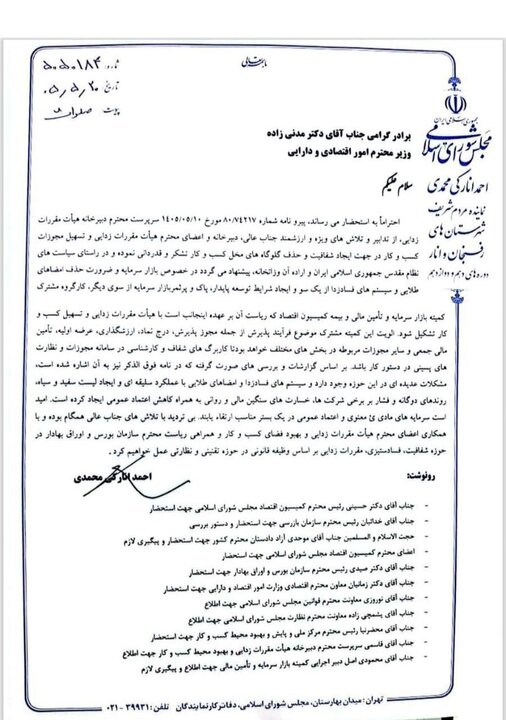 باسمه تعالی
شماره: ۵۰۵۰۱۸۴
تاریخ: ۰۵/۵/۲۰
پیوست
جمهوری اسلامی ایران
مجلس شورای اسلامی
احمد انارکی محمدی
نماینده مردم شریف
شهرستان های
رفسنجان و انار
دوره های دهم و دوازدهم
برادر گرامی جناب آقای دکتر مدنی زاده
وزیر محترم امور اقتصادی و دارایی
سلام علیکم
احتراماً به استحضار می رساند، پیرو نامه شماره ۸۰/۷۴۲۱۷ مورخ ۱۴۰۵/۰۵/۱۰ سرپرست محترم دبیرخانه هیأت مقررات
زدایی، از تدابیر و تلاش های ویژه و ارزشمند جناب عالی، دبیرخانه و اعضای محترم هیأت مقررات زدایی و تسهیل مجوزات
کسب و کار در جهت ایجاد شفافیت و حذف گلوگاه های مخل کسب و کار تشکر و قدردانی نموده و در راستای سیاست های
نظام مقدس جمهوری اسلامی ایران و اراده آن وزاتخانه، پیشنهاد می گردد در خصوص بازار سرمایه و ضرورت حذف امضاهای
طلایی و سیستم های فسادزدا از یک سو و ایجاد شرایط توسعه پایدار، پاک و پرثمربازار سرمایه از سوی دیگر، کارگروه مشترک
کمیته بازار سرمایه و تأمین مالی و بیمه کمیسیون اقتصاد که ریاست آن بر عهده اینجانب است با هیأت مقررات زدایی و تسهیل کسب و
کار تشکیل شود. الویت این کمیته مشترک موضوع فرآیند پذیرش از جمله مجوز پذیرش، درج نماد، ارزشگذاری، عرضه اولیه، تأمین
مالی جمعی و سایر مجوزات مربوطه در بخش های مختلف خواهد بودتا کاربرگ های شفاف و کارشناسی در سامانه مجوزات و نظارت
های پسینی در دستور کار باشد. بر اساس گزارشات و بررسی های صورت گرفته که در نامه فوق الذکر نیز به آن اشاره شده است،
مشکلات عدیده ای در این حوزه وجود دارد و سیستم های فسادزدا و امضاهای طلایی با عملکرد سلیقه ای و ایجاد لیست سفید و سیاه،
روندهای دوگانه و فشار بر برخی شرکت ها، خسارت های سنگین مالی و روانی به همراه کاهش اعتماد عمومی ایجاد کرده است. امید
است سرمایه های مادی ئ معنوی و اعتماد عمومی در یک بستر مناسب ارتقاء یابند. بی تردید با تلاش های جناب عالی همگام بوده و با
همکاری اعضای محترم هیأت مقررات زدایی و بهبود فضای کسب و کار و همراهی ریاست محترم سازمان بورس و اوراق بهادار در
حوزه شفافیت، فسادستیزی، مقررات زدایی بر اساس وظیفه قانونی در حوزه تقنینی و نظارتی عمل خواهیم کرد.
احمد انارکی محمدی
رونوشت:
- جناب آقای دکتر حسینی رئیس محترم کمیسیون اقتصاد مجلس شورای اسلامی جهت استحضار
- جناب آقای خدائیان رئیس محترم سازمان بازرسی جهت استحضار و دستور بررسی
- حجت الاسلام و المسلمین جناب آقای موحدی آزاد دادستان محترم کشور جهت استحضار و پیگیری لازم
- اعضای محترم کمیسیون اقتصاد مجلس شورای اسلامی جهت استحضار
- جناب آقای دکتر صیدی رئیس محترم سازمان بورس و اوراق بهادار جهت استحضار
- جناب آقای دکتر زمانیان معاون محترم اقتصادی وزارت امور اقتصاد و دارایی جهت استحضار
- جناب آقای نوروزی معاونت محترم قوانین مجلس شورای اسلامی جهت اطلاع
- جناب آقای پشمچی زاده معاونت محترم نظارت مجلس شورای اسلامی جهت اطلاع
- جناب آقای محضرنیا رئیس محترم مرکز ملی و پایش و بهبود محیط کسب و کار جهت استحضار
- جناب آقای قاسمی سرپرست محترم دبیرخانه هیأت مقررات زدایی و بهبود محیط کسب و کار جهت اطلاع
- جناب آقای محمودی اصل دبیر اجرایی کمیته بازار سرمایه و تأمین مالی جهت اطلاع و پیگیری لازم
تهران: میدان بهارستان، مجلس شورای اسلامی، دفاتر کار نمایندگان تلفن: ۳۹۹۳۱-۰۲۱